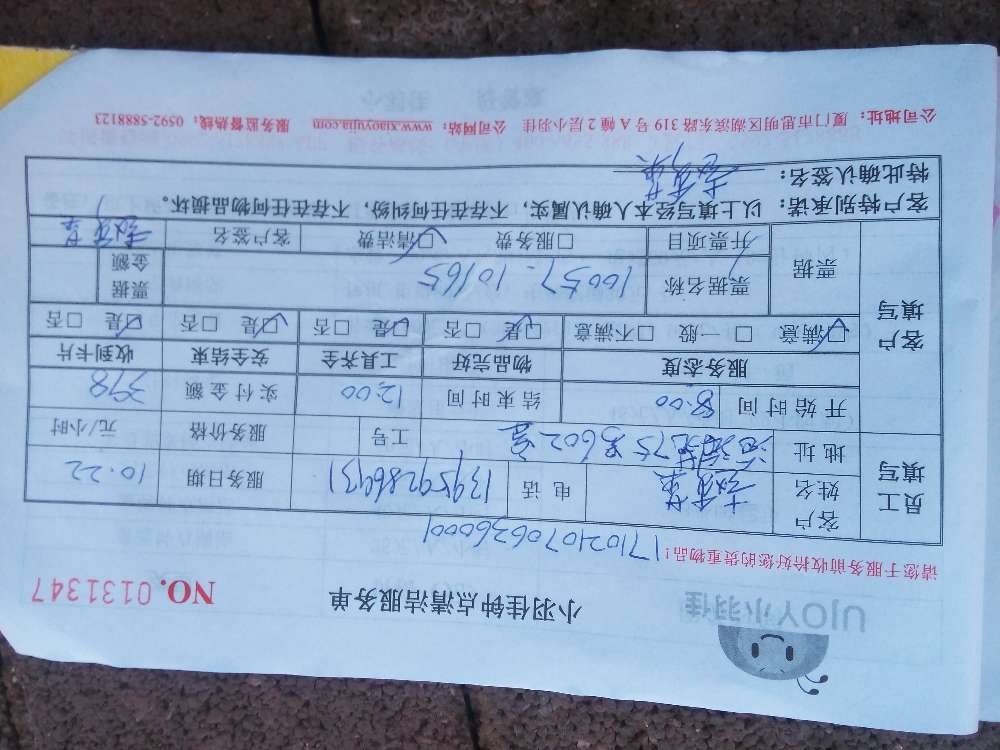 UJOY小羽佳
小羽佳钟点清洁服务单
NO. 0131347
请您于服务前收拾好您的贵重物品!
171021070636001
员工填写
客户姓名
电话
13959286931
服务日期
10.22
地址
75号602室
工号
服务价格
元/小时
开始时间
8:00
结束时间
12:00
实付金额
378
客户填写
服务态度
物品完好
工具齐全
安全结束
收到卡片
☑满意 □一般 □不满意
☑是 □否
☑是 □否
☑是 □否
☑是 □否
票据
票据名称
10057-10165
票据金额
开票项目
□服务费 ☑清洁费
客户签名
客户特别承诺: 以上填写经本人确认属实,不存在任何纠纷,不存在任何物品损坏。
特此确认签名:
公司地址: 厦门市思明区湖滨东路 319 号 A 幢 2 层小羽佳 公司网站: www.xiaoyujia.com 服务监督热线: 0592-5888123